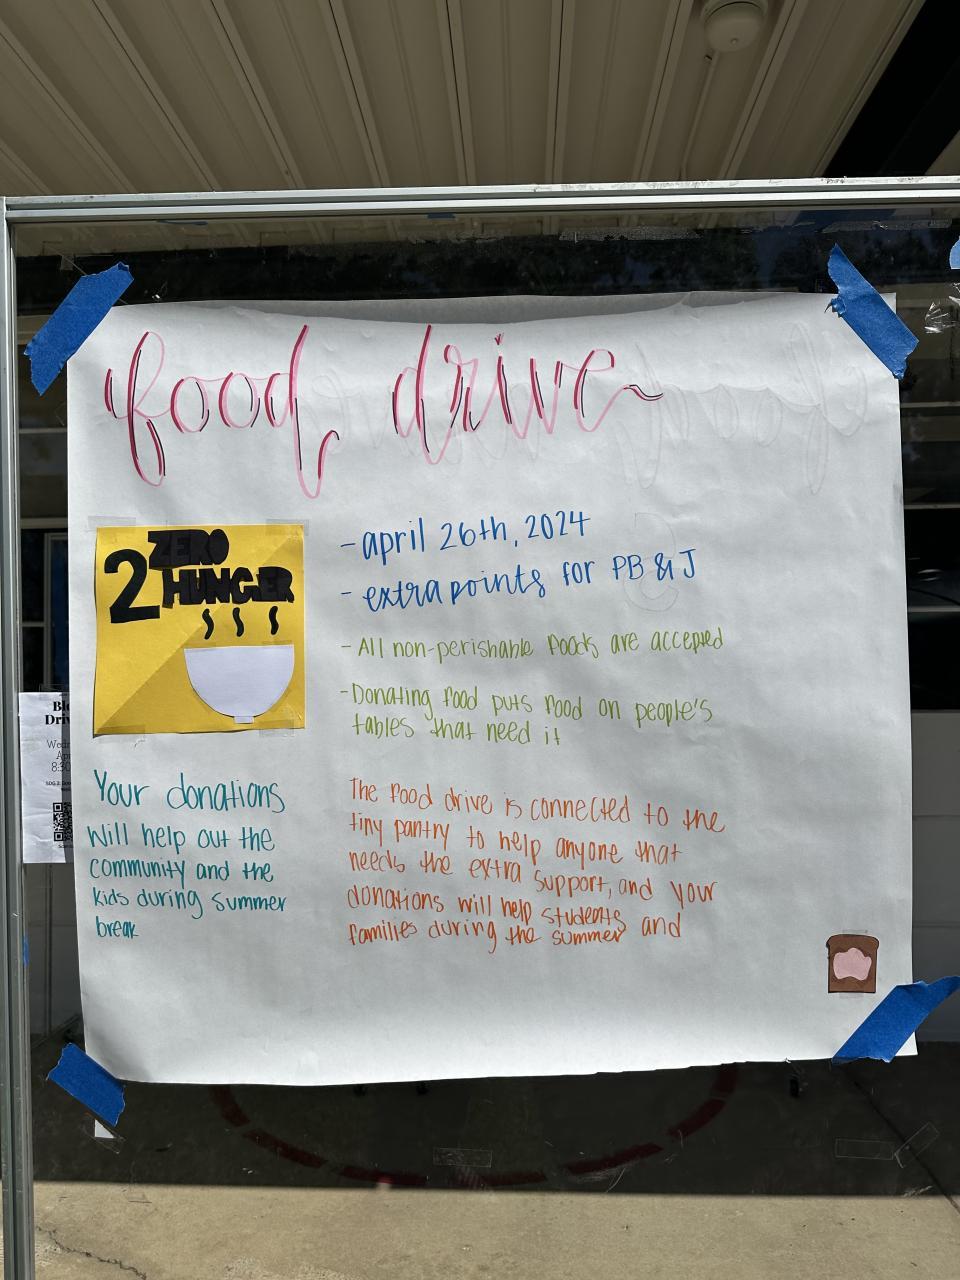 food drive
2 ZERO
HUNGER
- april 26th, 2024
- extra points for PB & J
- All non-perishable foods are accepted
- Donating food puts food on people's
tables that need it
Your donations
will help out the
community and the
kids during summer
break
The food drive is connected to the
tiny pantry to help anyone that
needs the extra support, and your
donations will help students and
families during the summer